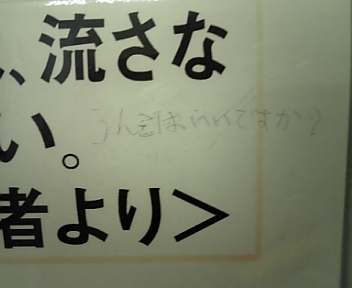 、流さな
い。
うんこはいいですか?
者より＞